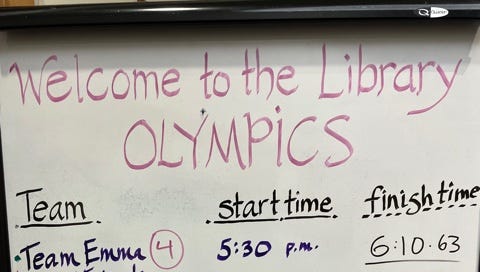 Quartet
Welcome to the Library
OLYMPICS
Team start time finish time
• Team Emma 4 5:30 p.m. 6:10.63